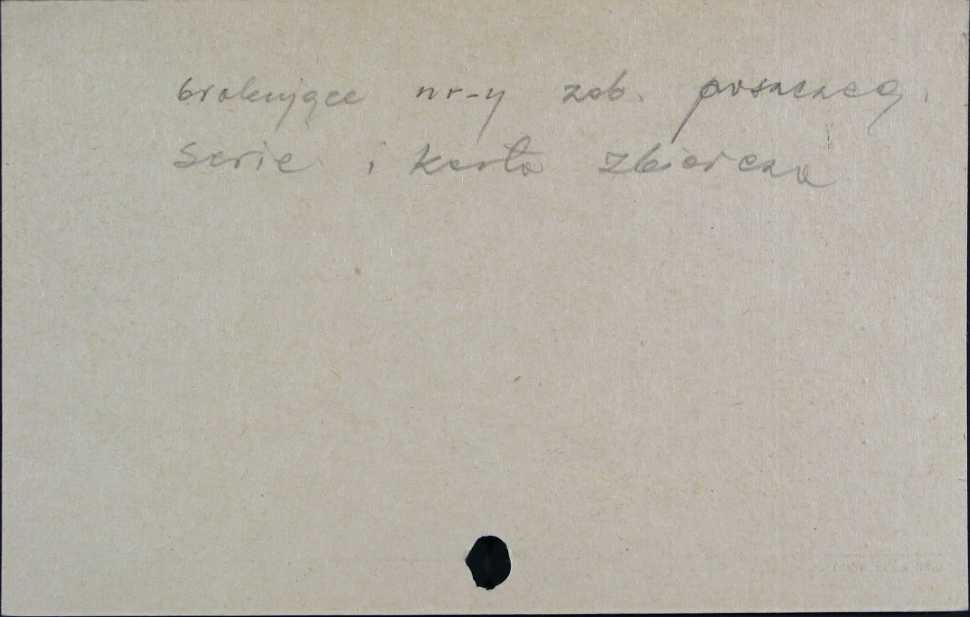 brakujące nr-y zob. poszczeg.
serie i karta zbiorcza